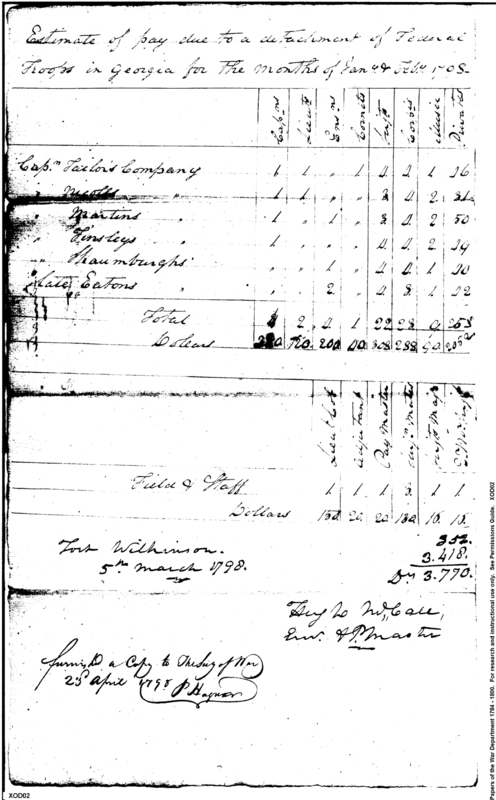 Estimate of pay due to a detachment of Federal
Troops in Georgia for the months of Jany & Feby 1798-
Capns Lieuts Ensns Cornets Serjts Corpls Music Privates
Capn Tailors Company 1 1 „ 1 4 4 1 46
„ Nicolls „ 1 1 „ „ 4 2
„ Martins „ 1 „ 1 „ 8 4 2 50
„ Tinsleys „ 1 „ „ „ 4 4 2 49
„ Shaumburghs „ „ 1 „ 4 4 1 40
„ late Eatons „ „ 2 „ 4 8 1 42
Total 4 2 4 1 22 28 9 258
Dolears 120. 200 40 308 288 90
Lieut Col Adjutant Pay Master Surjn Mates Serjt Majr
Field & Staff 1 1 1 3. 1 1
Dollars 150 20. 20 130 16. 16.
352.
Fort Wilkinson. 3.418.
5th march 1798. Drs 3.770.
Hugh McCall,
Ens. & P. Master
furnishd a Copy to the Secy of War
23d April 1798 P Hagner
XOD02
Papers of the War Department 1784 - 1800. For research and instructional use only. See Permissions Guide. XOD02